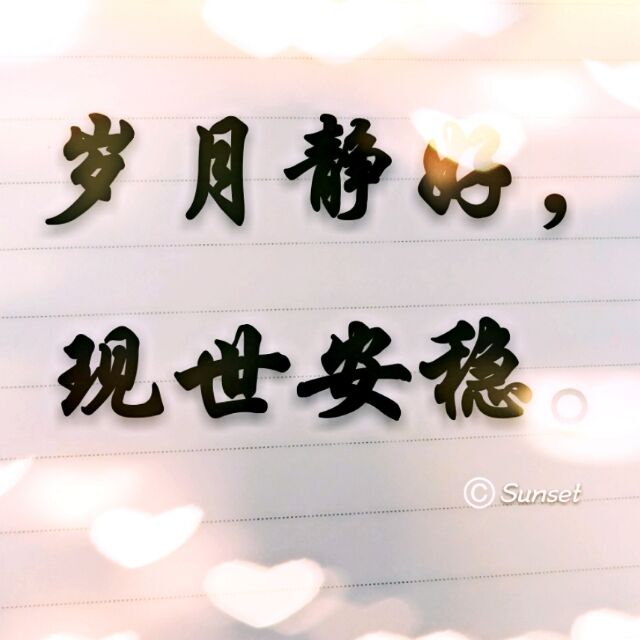 岁月静好，
现世安稳。
© Sunset